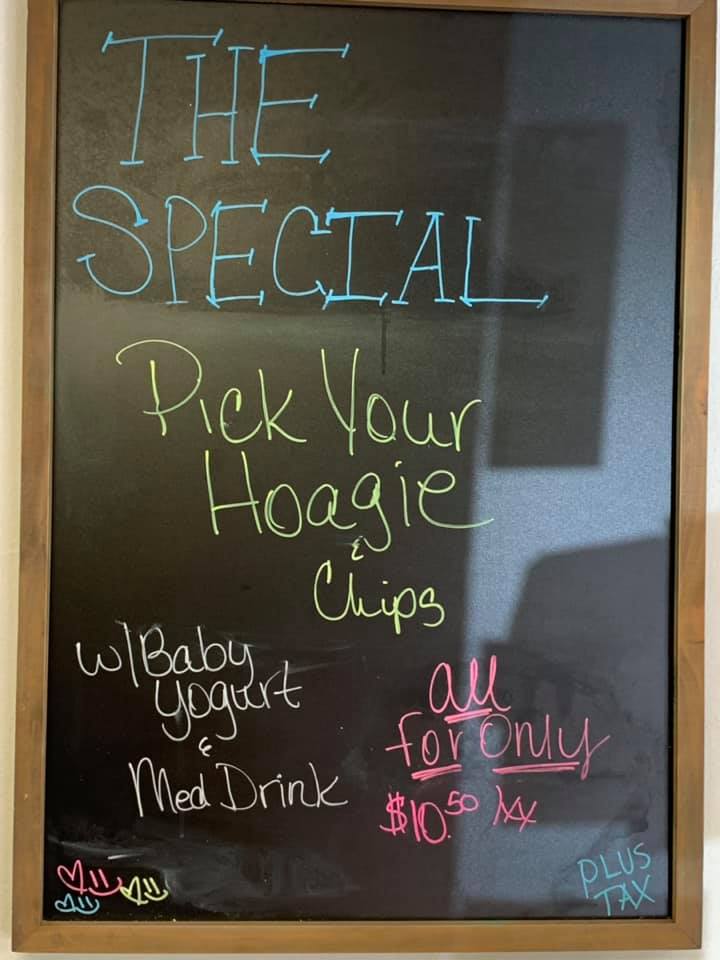 THE
SPECIAL
Pick Your
Hoagie
&
Chips
w/Baby
Yogurt
&
Med Drink
all
for Only
$10.50
PLUS
TAX